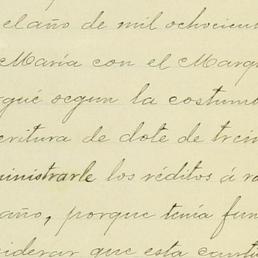 el año de mil ochocien
María con el Marqu
rqué ocgun la costum
critura de dote de trein
ministrarle los réditos á ra
año, porque tenía fun
siderar que esta canti